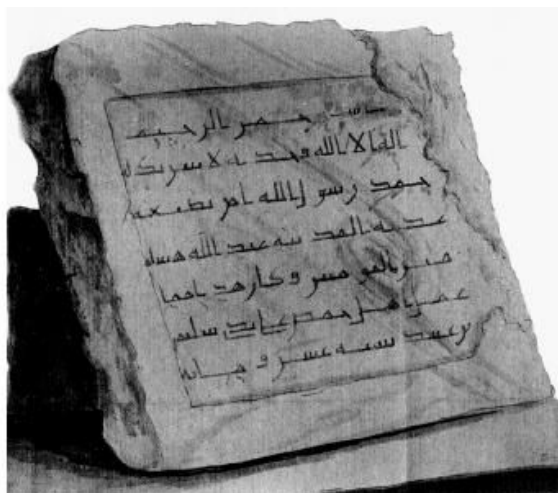 الرحمن الرحيم
اله الا الله وحده لا شريك له
محمد رسول الله امر بصنعه
هذه المدينه عبد الله هشام
مير المومنين وكان هذا مما
عمل اهل حمص على يدي سليم
بن عبيد سنه عشر و مايه